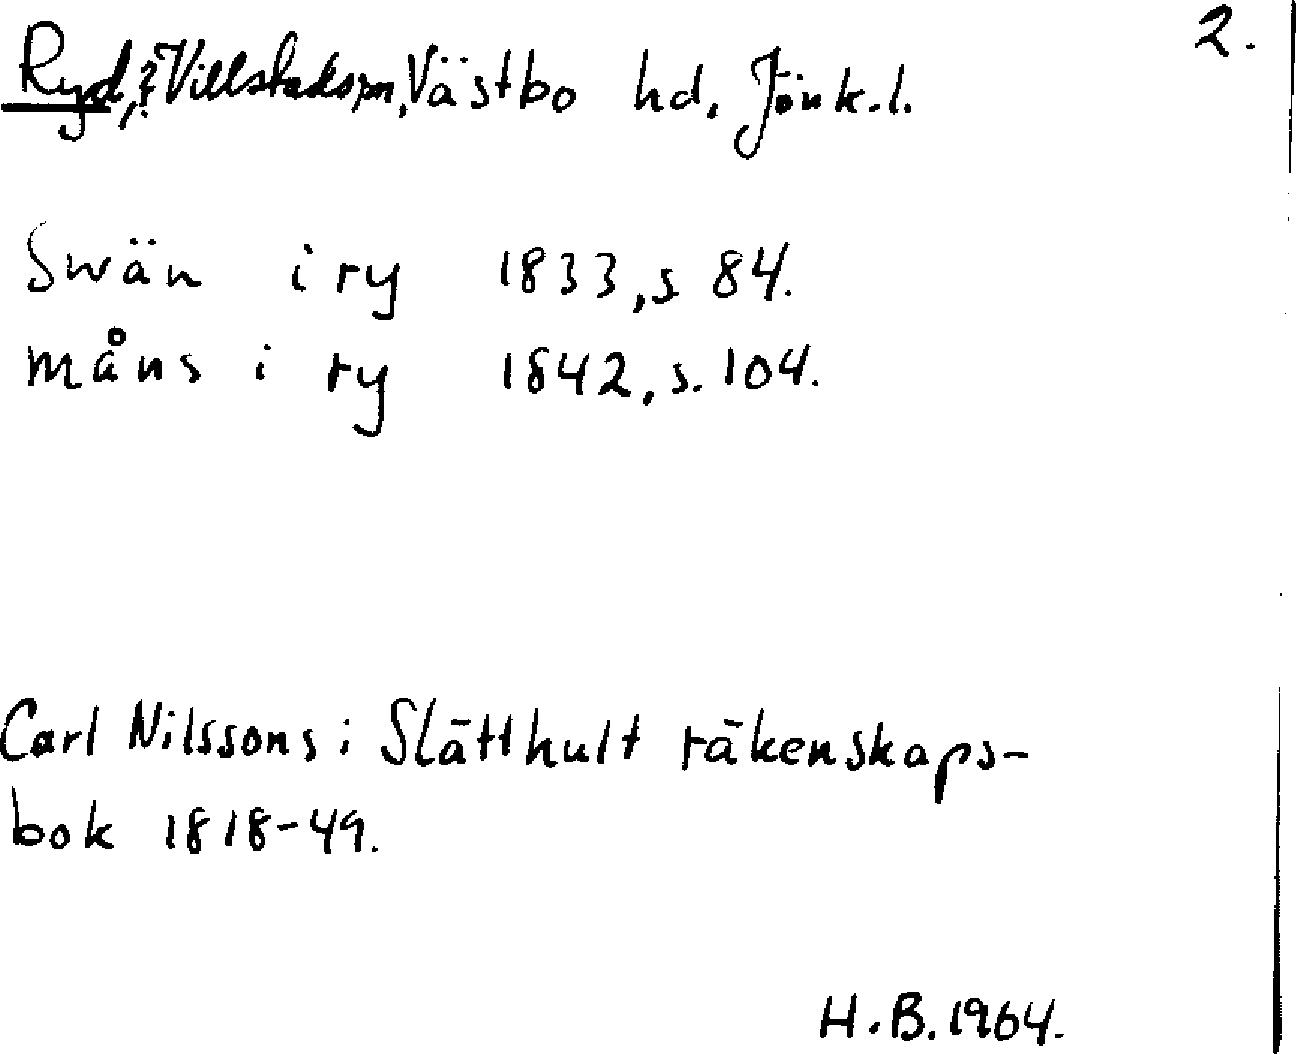 2.
Ryd, ? Villstads sn, Västbo hd, Jönk.l.
Swän i ry 1833, s 84.
måns i ry 1842, s. 104.
Carl Nilssons i Slätthult räkenskaps-
bok 1818-49.
H.B. 1964.